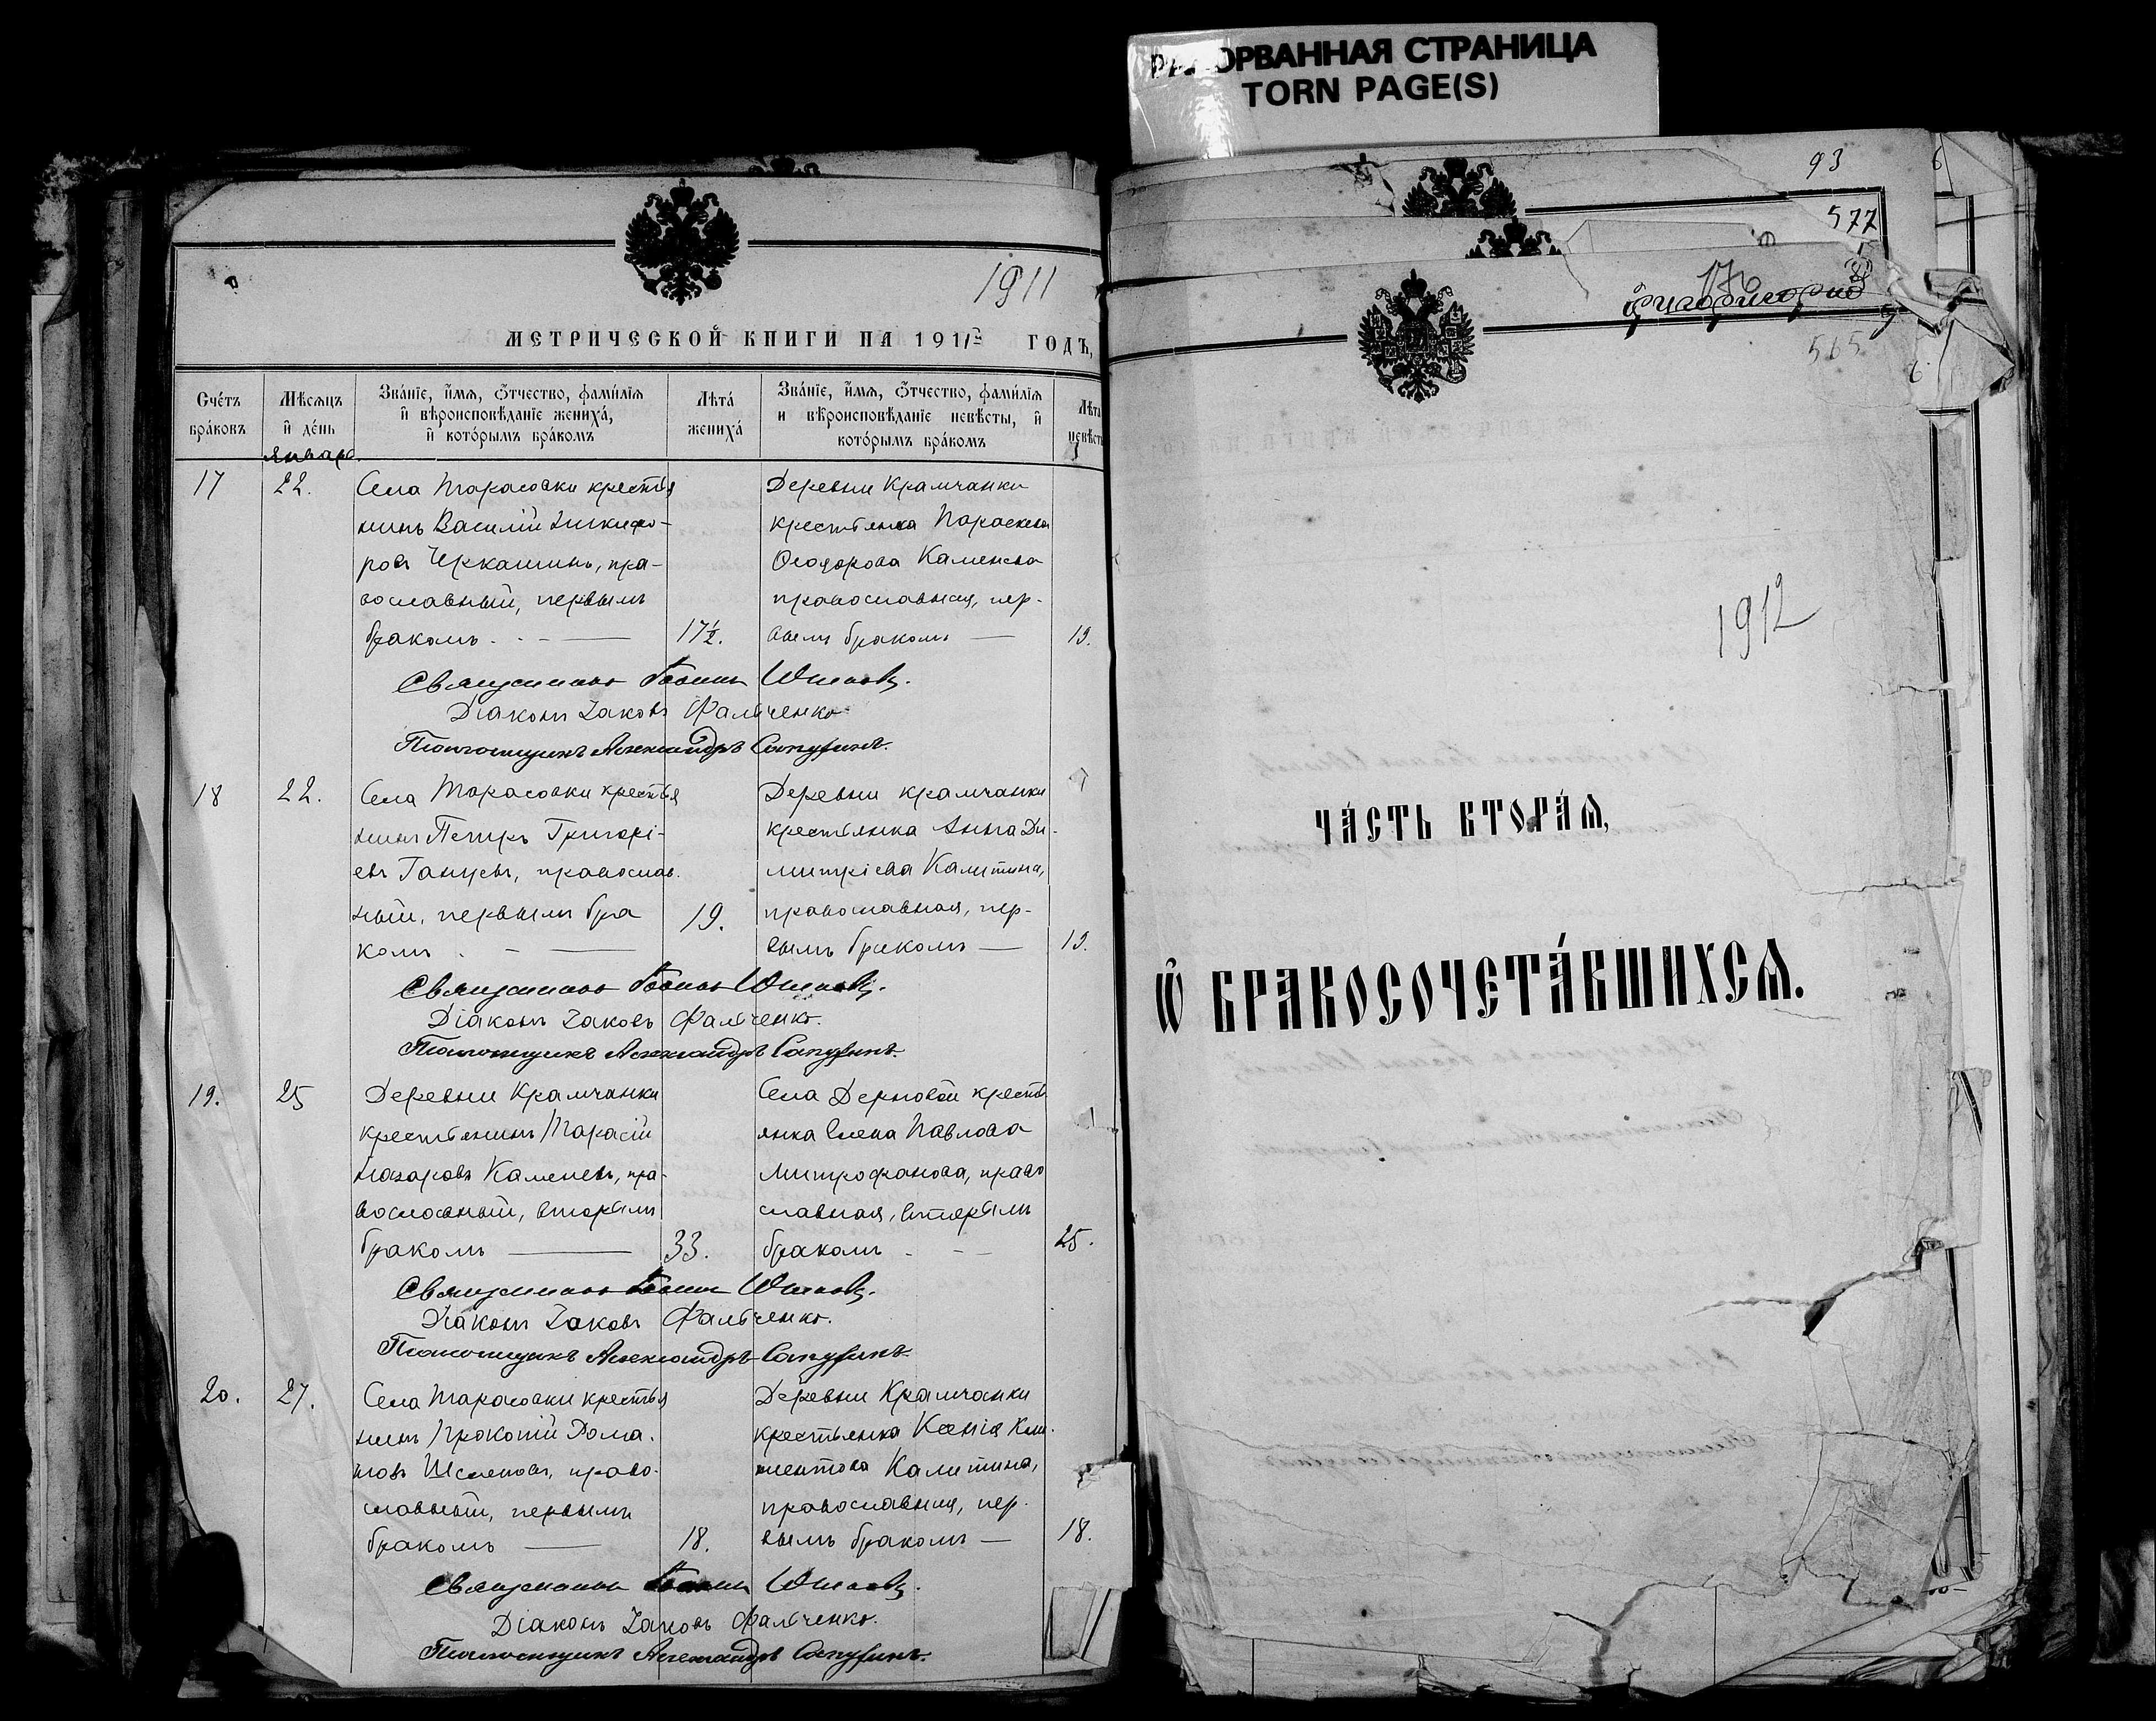 РВАННАЯ СТРАНИЦА
TORN PAGE(S)
1911
МЕТРИЧЕСКОЙ КНИГИ НА 1911й ГОДЪ,
Счéтъ брáковъ
Мѣсяцъ и҆ дéнь
Январь
Звáнїе, и҆́мѧ, ѻ҆́тчество, фамúлїѧ и҆ вѣроисповѣ́данїе женихá, и҆ котóрымъ брáкомъ
Лѣтá женихá
Звáнїе, и҆́мѧ, ѻ҆́тчество, фамúлїѧ и вѣроисповѣ́данїе невѣсты, и҆ котóрымъ брáкомъ
Лѣта невѣсты
17
22.
Села Тарасовки крестья
нинъ Василій Никифо-
ровъ Черкашинъ, пра-
вославный, первымъ
бракомъ
17½.
Деревни Крамчанки
крестьянка Параскева
Ѳеодорова Каменева
православная, пер-
вымъ бракомъ
19.
Священникъ Іоаннъ
Діаконъ Іаковъ Фальченко.
Псаломщикъ Александръ
18
22.
Села Тарасовки крестья
нинъ Петръ Григорі-
евъ Ганцевъ, православ.
ный, первымъ бра
комъ
19.
Деревни Крамчанки
крестьянка Анна Ди-
митріева Калитина,
православная, пер-
вымъ бракомъ
19.
Священникъ Іоаннъ
Діаконъ Іаковъ Фальченко.
Псаломщикъ Александръ
19.
25
Деревни Крамчанки
крестьянинъ Тарасій
Назаровъ Каменевъ, пра-
вославный, вторымъ
бракомъ
33.
Села Дерновой кресть
янка Елена Павлова
Митрофанова, право
славная, вторымъ
бракомъ
25.
Священникъ Іоаннъ
Діаконъ Іаковъ Фальченко.
Псаломщикъ Александръ
20.
27.
Села Тарасовки крестья
нинъ Прокопій Рома.
новъ православный, первымъ
бракомъ
18.
Деревни Крамчанки
крестьянка Ксенія Кли-
ментова Калитина,
православная, пер.
вымъ бракомъ
18.
Священникъ Іоаннъ
Діаконъ Іаковъ Фальченко.
Псаломщикъ Александръ
93
6
577
176
565
1912
ЧА́СТЬ ВТОРА́Ѧ,
Ѡ҆ БРАКОСОЧЕТА́ВШИХСѦ.